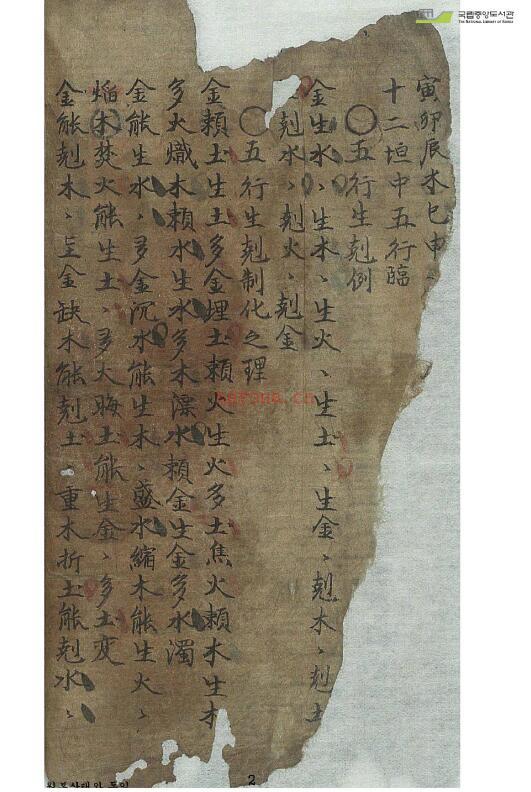 국립중앙도서관
THE NATIONAL LIBRARY OF KOREA
寅卯辰木巳申
十二垣中五行臨
〇五行生剋例
金生水、生木、生火、生土、生金、剋木、剋土
剋水、剋火、剋金
〇五行生剋制化之理
金賴土生土多金埋土賴火生火多土焦火賴木生木
多火熾木賴水生水多木漂水賴金生金多水濁
金能生水、多金沉水能生木、盛水縮木能生火、
焰木焚火能生土、多火晦土能生金、多土変
金能剋木、金缺木能剋土 重木折土能剋水、
2